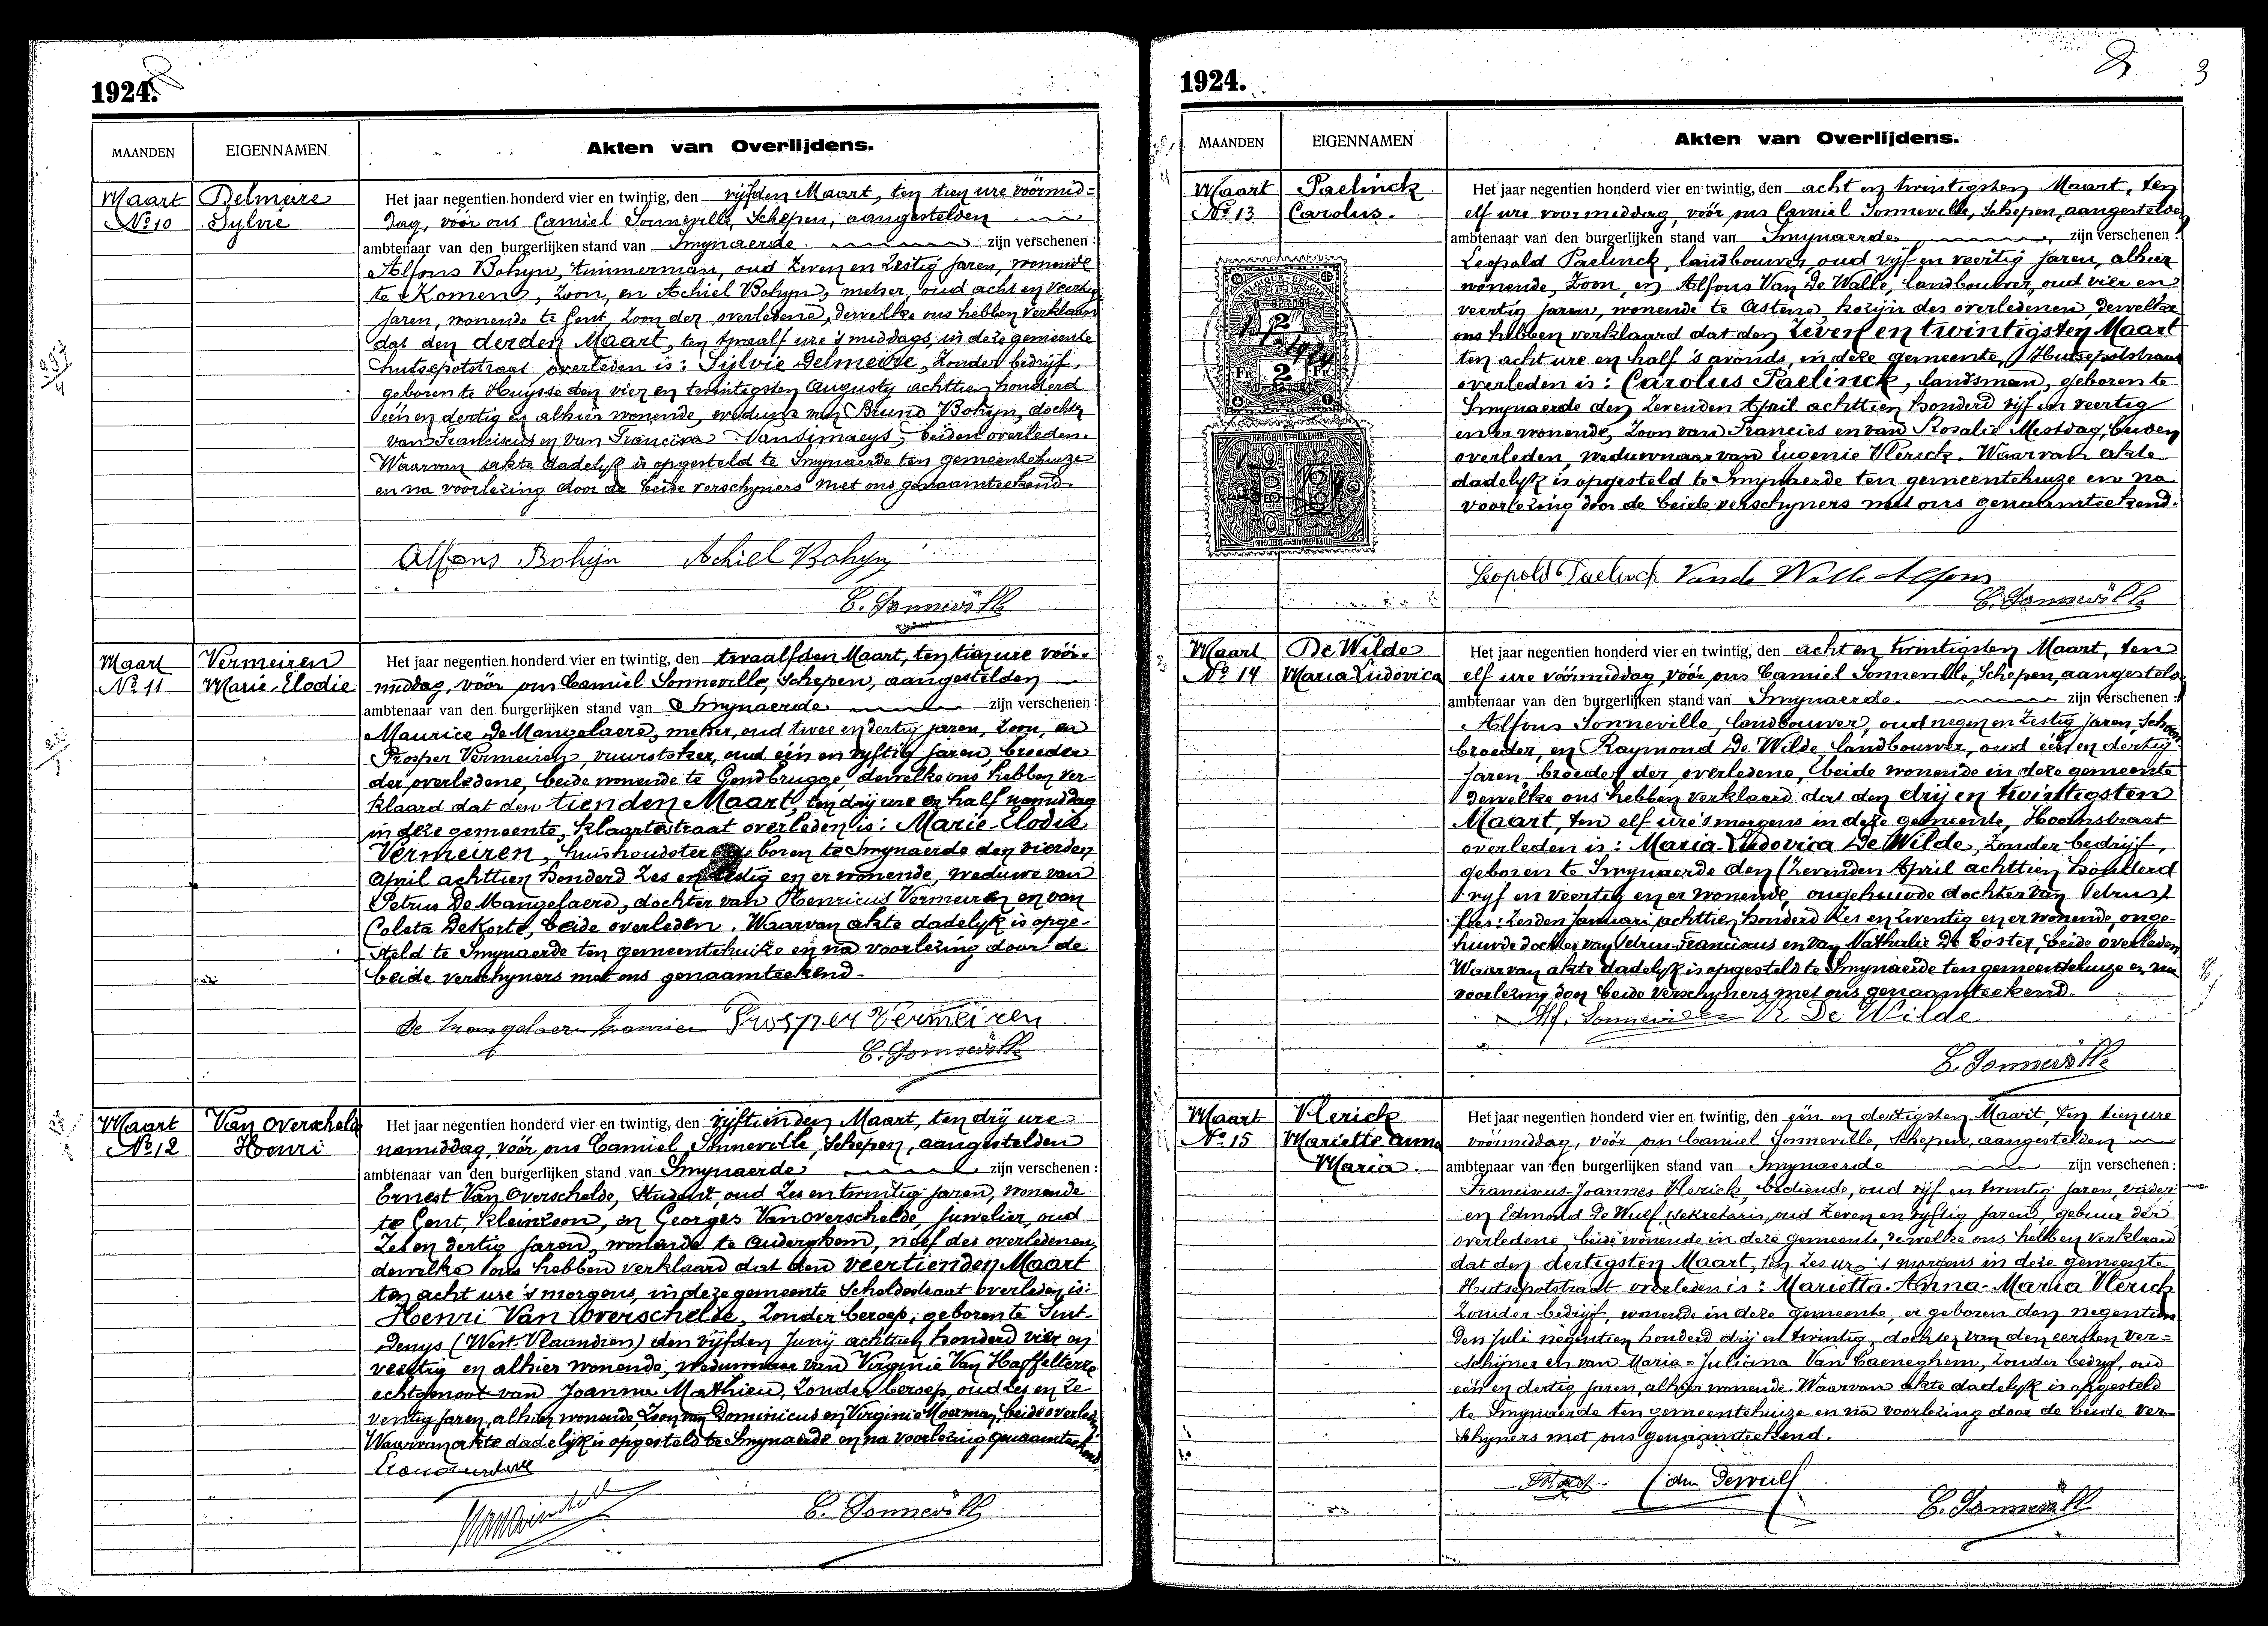 1924.
MAANDEN EIGENNAMEN Akten van Overlijdens.
Maart Delmeire
No 10 Sylvie
Het jaar negentien honderd vier en twintig, den vijfden Maart, ten tien ure voormid=
dag, vóór ons Camiel Sonneville, Schepen, aangestelden
ambtenaar van den burgerlijken stand van Smynaerde zijn verschenen:
Alfons Bohyn, timmerman, oud zeven en zestig jaren, wonende
te Komen, zoon, en Achiel Bohyn, metser, oud acht en veertig
jaren, wonende te Gent, zoon der overledene, dewelke ons hebben verklaard
dat den derden Maart, ten twaalf ure 's middags, in deze gemeente
hutsepotstraat overleden is: Sylvie Delmeire, zonder bedrijf,
geboren te Huysse den vier en twintigsten Augusty achttien honderd
één en dertig en alhier wonende, weduwe van Bruno Bohyn, dochter
van Franciscus en van Francisca Vansimaeys, beiden overleden.
Waarvan akte dadelyk is opgesteld te Smynaerde ten gemeentehuize
en na voorlezing door de beide verschyners met ons genaamteekend.
Alfons Bohijn Achiel Bohyn
C. Sonneville
Maart Vermeiren
No 11 Marie-Elodie
Het jaar negentien honderd vier en twintig, den twaalfden Maart, ten tien ure vóór-
middag, vóór ons Camiel Sonneville, Schepen, aangestelden
ambtenaar van den burgerlijken stand van Smynaerde zijn verschenen:
Maurice De Mangelaere, metser, oud twee en dertig jaren, zoon, en
Prosper Vermeiren, vuurstoker, oud één en vyftig jaren, broeder
der overledene, beide wonende te Gendbrugge, dewelke ons hebben ver-
klaard dat den tienden Maart, ten drij ure en half namiddag
in deze gemeente, klaartestraat overleden is: Marie-Elodie
Vermeiren, huishoudster geboren te Smynaerde den vierden
April achttien honderd zes en zestig en er wonende, weduwe van
Petrus De Mangelaere, dochter van Henricus Vermeiren en van
Coleta DeKorte, beide overleden. Waarvan akte dadelyk is opge-
steld te Smynaerde ten gemeentehuize en na voorlezing door de
beide verschyners met ons genaamteekend.
De Mangelaere Maurice Prosper Vermeiren
C. Sonneville
Maart Van Overschelde
No 12 Henri
Het jaar negentien honderd vier en twintig, den vijftienden Maart, ten drij ure
namiddag, vóór ons Camiel Sonneville, Schepen, aangestelden
ambtenaar van den burgerlijken stand van Smynaerde zijn verschenen:
Ernest Van Overschelde, Student, oud zes en twintig jaren, wonende
te Gent, kleinzoon, en Georges Vanoverschelde, juwelier, oud
zes en dertig jaren, wonende te Auderghem, neef des overledenen,
dewelke ons hebben verklaard dat den veertienden Maart
ten acht ure 's morgens, in deze gemeente Scheldestraat overleden is:
Henri Van Overschelde, zonder beroep, geboren te Sint-
Denys (West-Vlaandren) den vijfden Junij achttien honderd vier en
veertig en alhier wonende, weduwnaar van Virginie Van Haffelterre
echtgenoot van Joanna Mathieu, zonder beroep, oud zes en ze-
ventig jaren, alhier wonende, Zoon van Dominicus en Virginie Moerman, beide overleden
Waarvan akte dadelijk is opgesteld te Smynaerde en na voorlezing genaamteekend
C. Sonneville
1924. 3
MAANDEN EIGENNAMEN Akten van Overlijdens.
Maart Paelinck
No 13 Carolus.
Het jaar negentien honderd vier en twintig, den acht en twintigsten Maart, ten
elf ure voormiddag, vóór ons Camiel Sonneville, Schepen, aangestelde
ambtenaar van den burgerlijken stand van Smynaerde zijn verschenen:
Leopold Paelinck, landbouwer, oud vijf en veertig jaren, alhier
wonende, zoon, en Alfons Van De Walle, landbouwer, oud vier en
veertig jaren, wonende te Astene, kozijn des overledenen, dewelke
ons hebben verklaard dat den zeven en twintigsten Maart
ten acht ure en half 's avonds, in deze gemeente, Hutsepotstraat
overleden is: Carolus Paelinck, landsman, geboren te
Smynaerde den zevenden April achttien honderd vijf en veertig
en er wonende, zoon van Francies en van Rosalie Mestdag, beiden
overleden, weduwnaar van Eugenie Vlerick. Waarvan akte
dadelyk is opgesteld te Smynaerde ten gemeentehuize en na
voorlezing door de beide verschyners met ons genaamteekend.
2
FR 2 FR
BELGIQUE-BELGIË
Leopold Paelinck Van de Walle Alfons
C. Sonneville
Maart De Wilde
No 14 Maria-Ludovica
Het jaar negentien honderd vier en twintig, den acht en twintigsten Maart, ten
elf ure vóórmiddag, vóór ons Camiel Sonneville, Schepen, aangestelde
ambtenaar van den burgerlijken stand van Smynaerde zijn verschenen:
Alfons Sonneville, landbouwer, oud negen en zestig jaren, schoon
broeder, en Raymond De Wilde, landbouwer, oud één en dertig
jaren, broeder der overledene, beide wonende in deze gemeente
dewelke ons hebben verklaard dat den drij en twintigsten
Maart, ten elf ure 's morgens in deze gemeente, Hoornstraat
overleden is: Maria-Ludovica De Wilde, zonder bedrijf,
geboren te Smynaerde den (zevenden April achttien honderd
vijf en veertig en er wonende, ongehuwde dochter van Petrus)
lees: zesden Januari achttien honderd zes en zeventig en er wonende, onge-
huwde dochter van Petrus-Franciscus en van Nathalie De Coster, beide overleden
Waarvan akte dadelyk is opgesteld te Smynaerde ten gemeentehuize en na
voorlezing door beide verschyners met ons genaamteekend.
Alf. Sonneville R De Wilde
C. Sonneville
Maart Vlerick
No 15 Mariette Anna
Maria.
Het jaar negentien honderd vier en twintig, den één en dertigsten Maart, ten tien ure
vóórmiddag, vóór ons Camiel Sonneville, Schepen, aangestelden
ambtenaar van den burgerlijken stand van Smynaerde zijn verschenen:
Franciscus-Joannes Vlerick, bediende, oud vijf en twintig jaren, vader
en Edmond De Wulf, sekretaris, oud zeven en vyftig jaren, gebuur der
overledene, beide wonende in deze gemeente, dewelke ons hebben verklaard
dat den dertigsten Maart, ten zes ure 's morgens in deze gemeente
Hutsepotstraat overleden is: Marietta-Anna-Maria Vlerick
zonder bedrijf, wonende in deze gemeente, er geboren den negentien
den juli negentien honderd drij en twintig, dochter van den eersten ver=
schijner en van Maria=Juliana Van Caeneghem, zonder bedryf, oud
één en dertig jaren, alhier wonende. Waarvan akte dadelyk is opgesteld
te Smynaerde ten gemeentehuize en na voorlezing door de beide ver-
schyners met ons genaamteekend.
Edm Dewulf
C. Sonneville